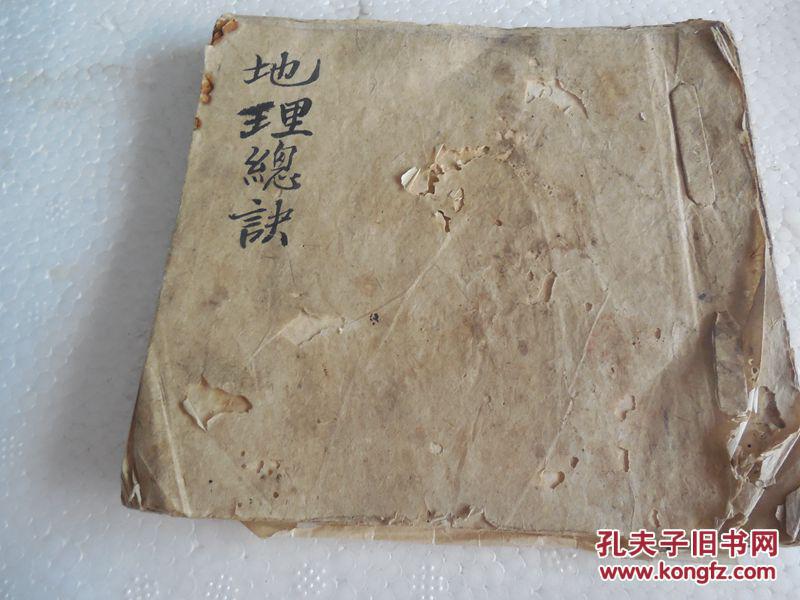 地理總訣
孔夫子旧书网
www.kongfz.com